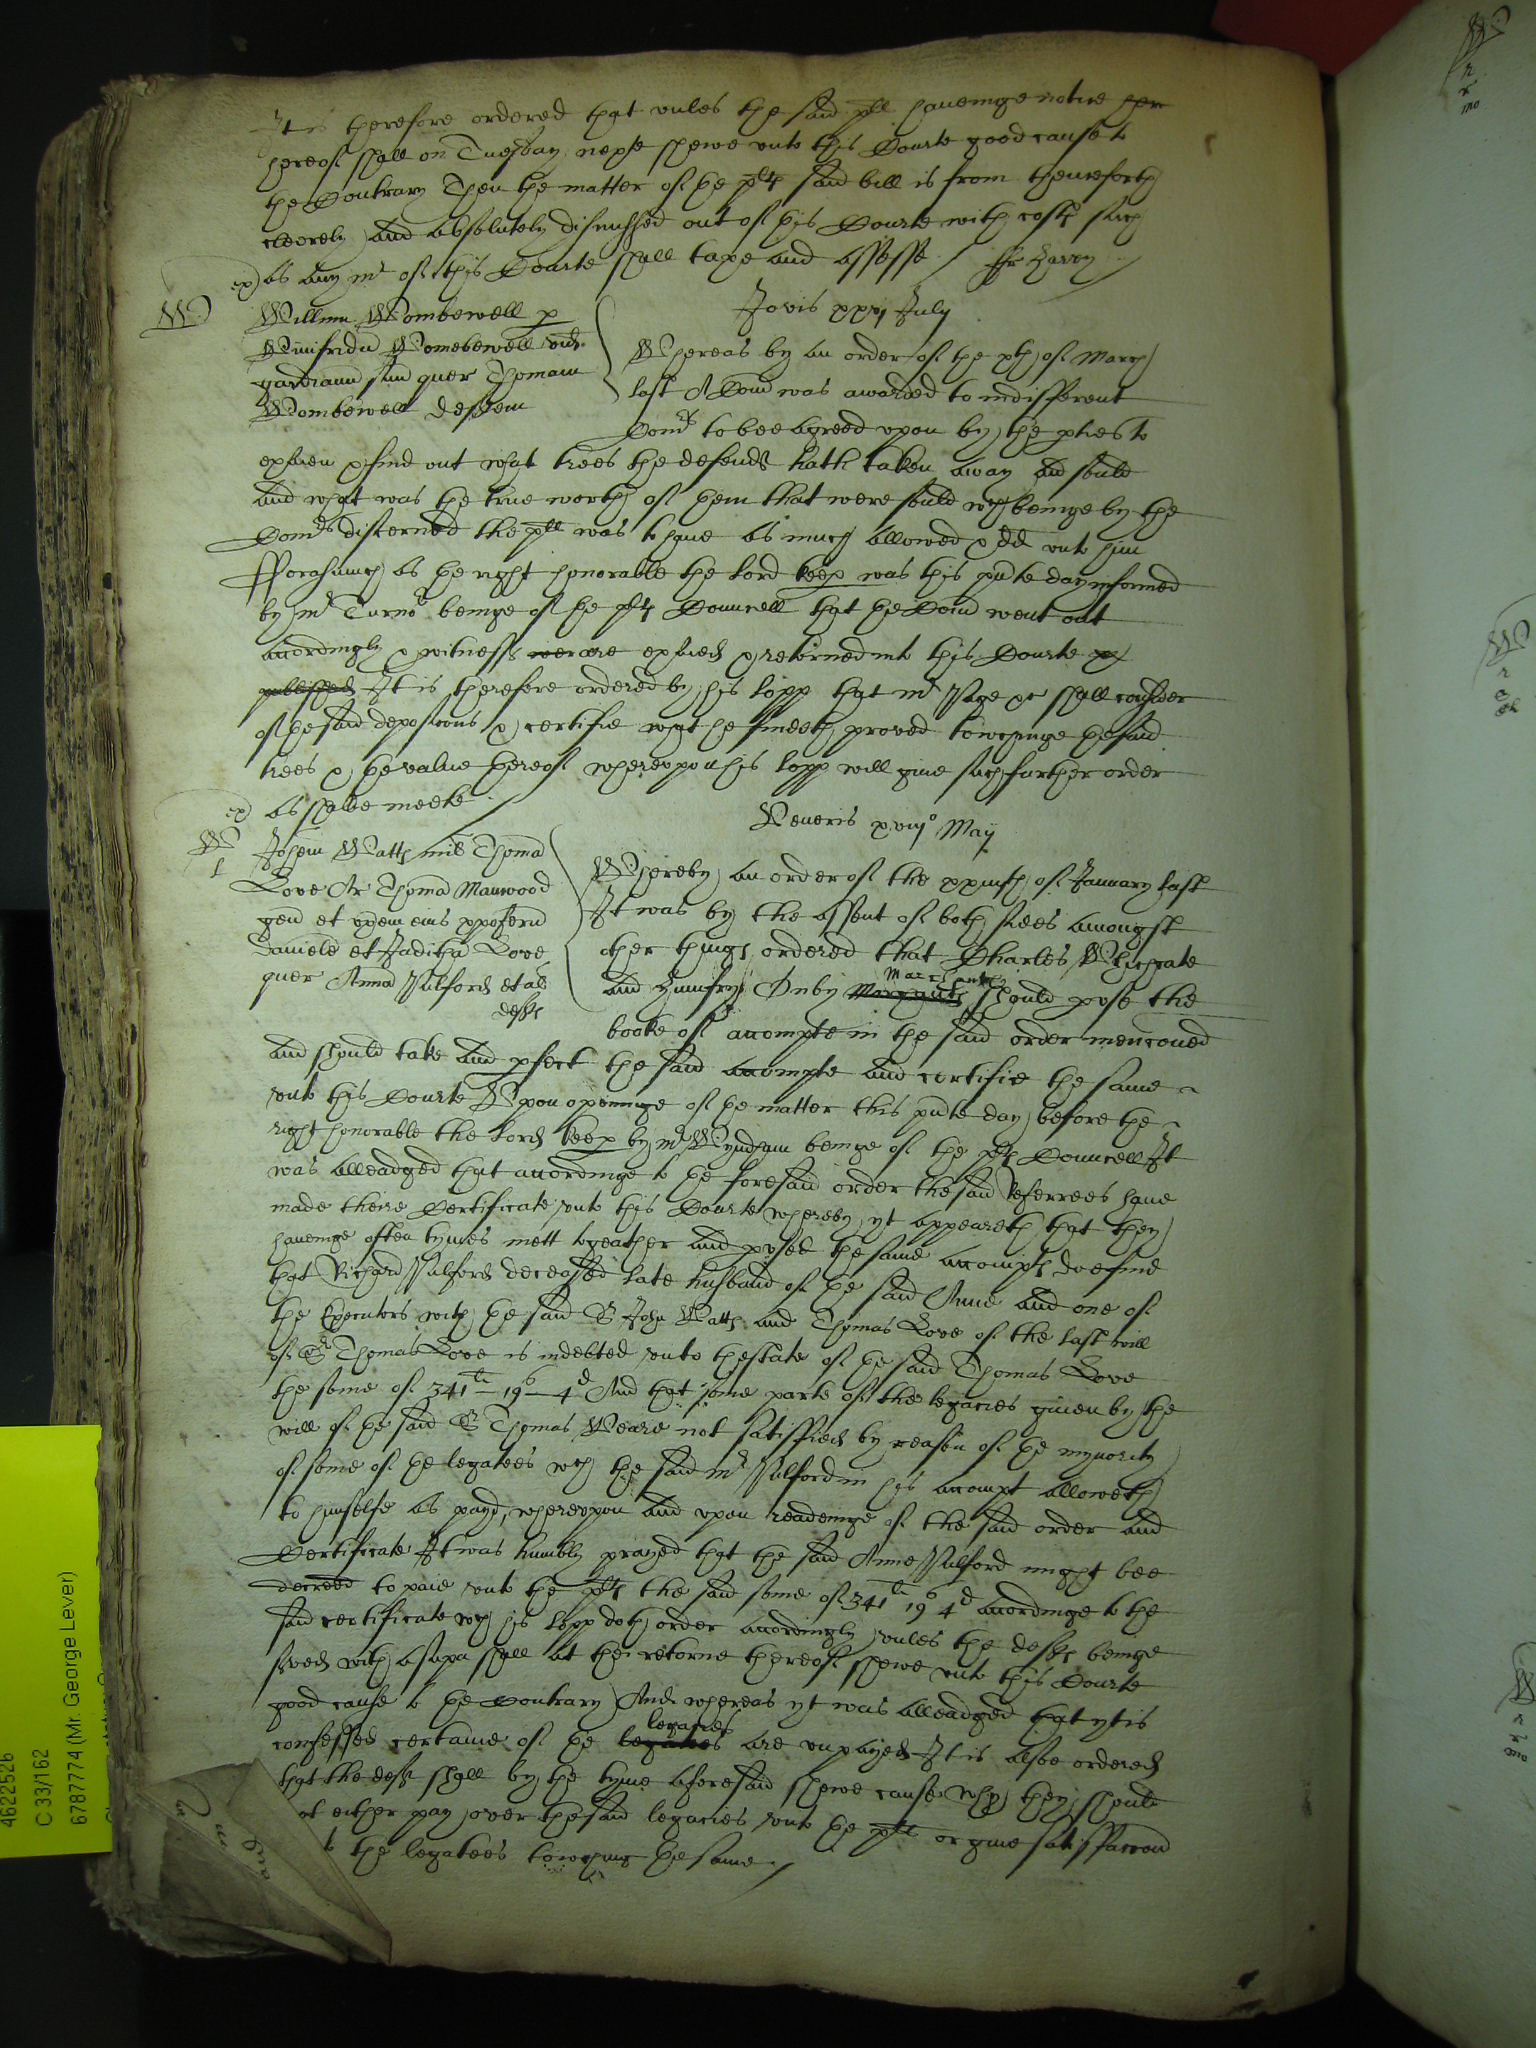 It is therefore ordered that unles the said pll haveinge notice her
hereof shall on Tuesday next shewe unto this Courte good cause to
the Contrary Then the matter of the plts said bill is from thenceforth
cleerely and absolutely dismissed out of this Courte with costs such
ex) as any mr of this Courte shall taxe and assesse / Fr Harvy
W
Willmu Wombewell p
Winifridu Womebewell vid
gardianu suu quer Thomam
Wombewell deftem
Jovis xxvj July
Whereas by an order of the xth of March
last A Com was awarded to indifferent
Comrs to bee agreed upon by the pties to
exaien & find out what trees the defendt hath taken away and sould
and what was the true worth of them that were sould wch beinge by the
Comrs discerned the pll was to have as much allowed & dd unto him
fforasmuch as the right honorable the lord keep was this pnte day informed
by mr Turnor beinge of the plts Councell that the Com went out
accordingly & witness were are exaied & retorned into this Courte &
published It is therefore ordered by his lopp that mr Page &c shall consider
of the said deposicons & certifie what he findeth proved towchinge the said
trees & the value thereof whereupon his lopp will give such further order
ex) as shalbe meete
W
l
Johem Watts mil Thoma
Love Ar Thoma Manwood
gen et uxem eius
Daniele et Juditha Love
quer Anna Pulford et al
defts
Veneris xviijo Maij
Whereby an order of the xxiiijth of January last
It was by the assent of both sides amongst
other things ordered that Charles Whichcote
and Humfry Onby Marchants
should pose the
booke of accompte in the said order menconed
and should take and pfect the said accompte and certifie the same
unto this Courte Upon openinge of the matter this pnte day before the
right honorable the Lord keep by mr Wyndham beinge of the plts Councell It
was alleadged that accordinge to the foresaid order the said Referrees have
made theire Certificate unto this Courte whereby yt appeareth that they
haveinge often tymes mett togeather and posed the same accompts doe find
that Richard Pulford deceased late husband of the said Anne and one of
the Executors with the said Sr John Watts and Thomas Love of the last will
of Sr Thomas Love is indebted unto thestate of the said Thomas Love
the some of 341li – 19s – 4d And that some parte of the legacies given by the
will of the said Sr Thomas Weare not satisfied by reason of the mynority
of some of the legatees wch the said mr Pulford in his accompt alloweth
to himselfe as payd, whereupon and upon readeinge of the said order and
Certificate It was humbly prayed that the said Anne Pulford might bee
decreed to paie unto the plts the said some of 341li 19s 4d accordinge to the
said certificate wch his lopp doth order accordingly unles the defts beinge
served with a supa shall at the retorne thereof shewe unto this Courte
good cause to the Contrary And whereas yt was alleadged that yt is
confessed certaine of the legatees legacies are unpayed It is alsoe ordered
that the deft shall by the tyme aforesaid shewe cause why they should
ot either pay over the said legacies unto the pll or give satisfaccon
the legatees towching the same /
4622526
C 33/162
6787774 (Mr. George Lever)